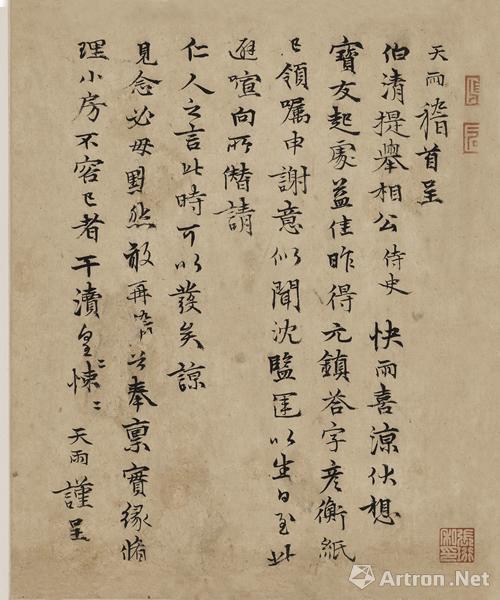 天雨稽首呈
伯清提舉相公侍史 快雨喜涼伏想
寶友起處益佳昨得元鎮答字彥衡紙
已領囑申謝意似聞沈監匡以生日至此
避喧向所僭請
仁人之言此時可以發矣諒
見念必毋罔然敢再 奉稟實緣脩
理小房不容已者干瀆皇〻悚〻
天雨謹呈
Artron.Net